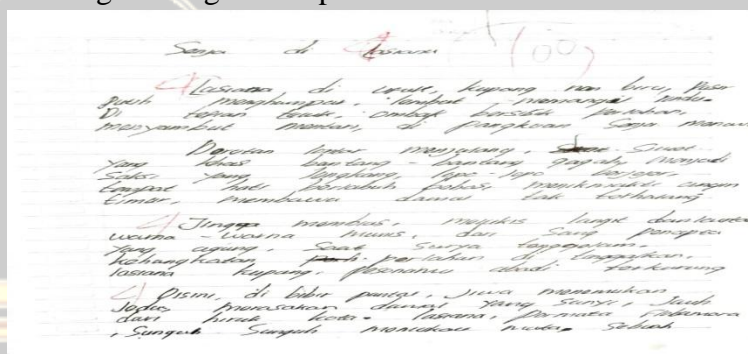 Senja di Lasiana
100
Lasiana di ufuk, kupang nan biru, Pasir
Putih menghampar, tempat memangu rindu.
Di tepian teluk, ombak berbisik perlahan,
menyambut mentari, di pangkuan Senja menawan
Deretan lontar menjulang, Siluet
yang khas bantang - bantang gagah, menjadi
Saksi yang lapang, lopo-lopo berjejer,
tempat hati berlabuh bebas, menikmati angin
timur, membawa damai tak terhalang
Jingga membias, melukis langit dan lautan
warna - warna manis, dari Sang pencipta
yang agung, Saat surya tenggelam,
kehangatan perlahan di tinggalkan,
lasiana kupang, pesonamu abadi terkurung
Disini, di bibir pantai, Jiwa menemukan
Jeda, merasakan damai yang sunyi, Jauh
dari hiruk kota. lasiana, permata Flobamora
, Sungguh Sungguh memukau mata, sebuah